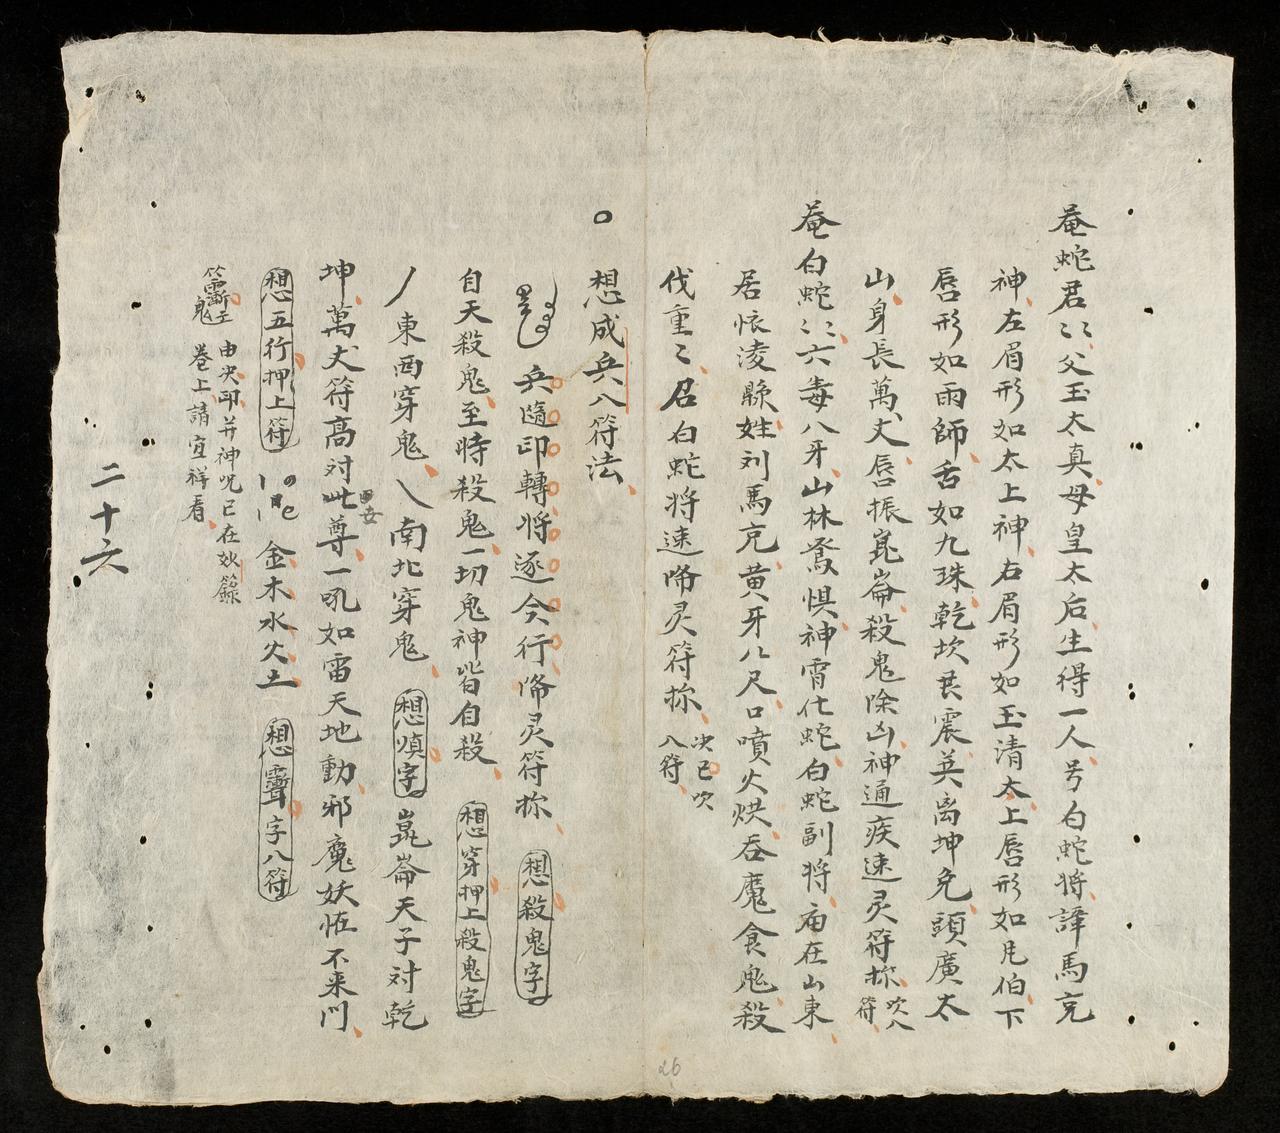 菴蛇君〻父玉太真母皇太后生得一人号白蛇将諱馬克
神左眉形如太上神右眉形如玉清太上唇形如凡伯下
唇形如雨師舌如九珠乾坎艮震英离坤兌頭廣太
山身長萬丈唇振崑崙殺鬼除凶神通疾速灵符揿吹八符
菴白蛇〻六毒八牙山林驚惧神霄仕蛇白蛇副将庙在山東
居怀淩縣姓刘馬克黄牙八尺口噴火烘吞魔食鬼殺
伐重〻召白蛇将速降灵符揿
决已吹
八符
想成兵八符法
兵隨印轉将逐令行降灵符揿 想殺鬼字
自天殺鬼至時殺鬼一切鬼神皆自殺 想穿押上殺鬼字
丿東西穿鬼乀南北穿鬼 想慎字 崑崙天子对乾
坤萬丈符高对此尊一吼如雷天地動邪魔妖怪不来鬥
想五行押上符 金木水火土 想字八符
由决印并神咒已在妙籙
卷上請宜祥看
二十六
26